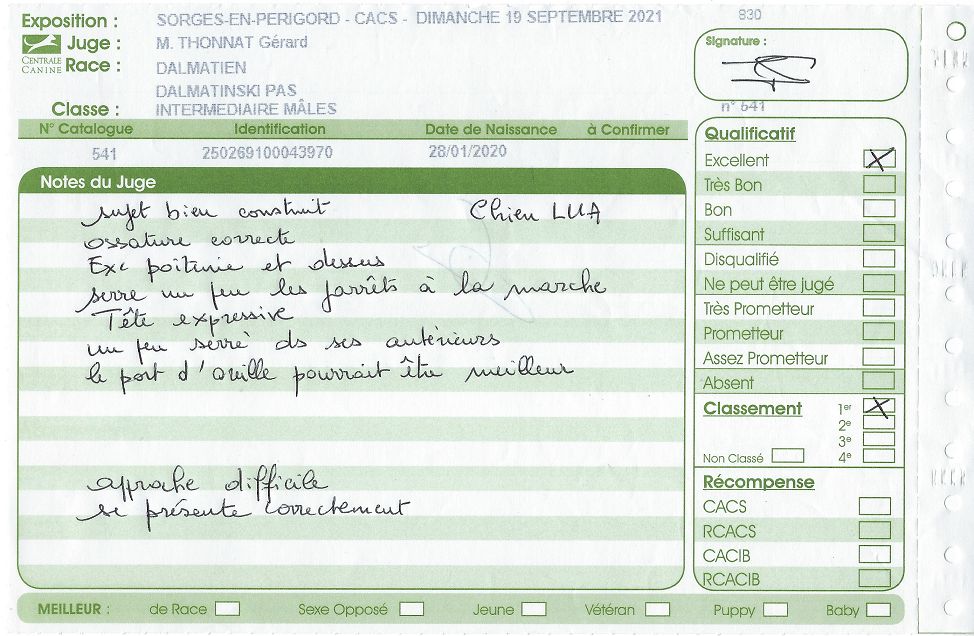 Exposition : SORGES-EN-PERIGORD - CACS - DIMANCHE 19 SEPTEMBRE 2021 830
Juge : M. THONNAT Gérard
CENTRALE CANINE
Race : DALMATIEN
DALMATINSKI PAS
Classe : INTERMEDIAIRE MÂLES
Signature :
n° 541
N° Catalogue Identification Date de Naissance à Confirmer
541 250269100043970 28/01/2020
Notes du Juge
sujet bien construit Chien LUA
ossature correcte
Exc poitrine et dessus
serre un peu les jarrêts à la marche
Tête expressive
un peu serré ds ses antérieurs
le port d'oreille pourrait être meilleur
approche difficile
se présente correctement
Qualificatif
Excellent X
Très Bon
Bon
Suffisant
Disqualifié
Ne peut être jugé
Très Prometteur
Prometteur
Assez Prometteur
Absent
Classement 1er X
2e
3e
Non Classé 4e
Récompense
CACS
RCACS
CACIB
RCACIB
MEILLEUR : de Race Sexe Opposé Jeune Vétéran Puppy Baby